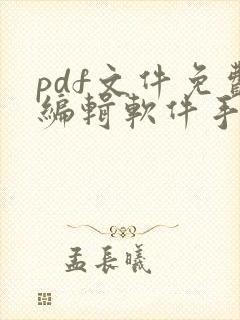 pdf文件免費
編輯軟件手
孟長曦